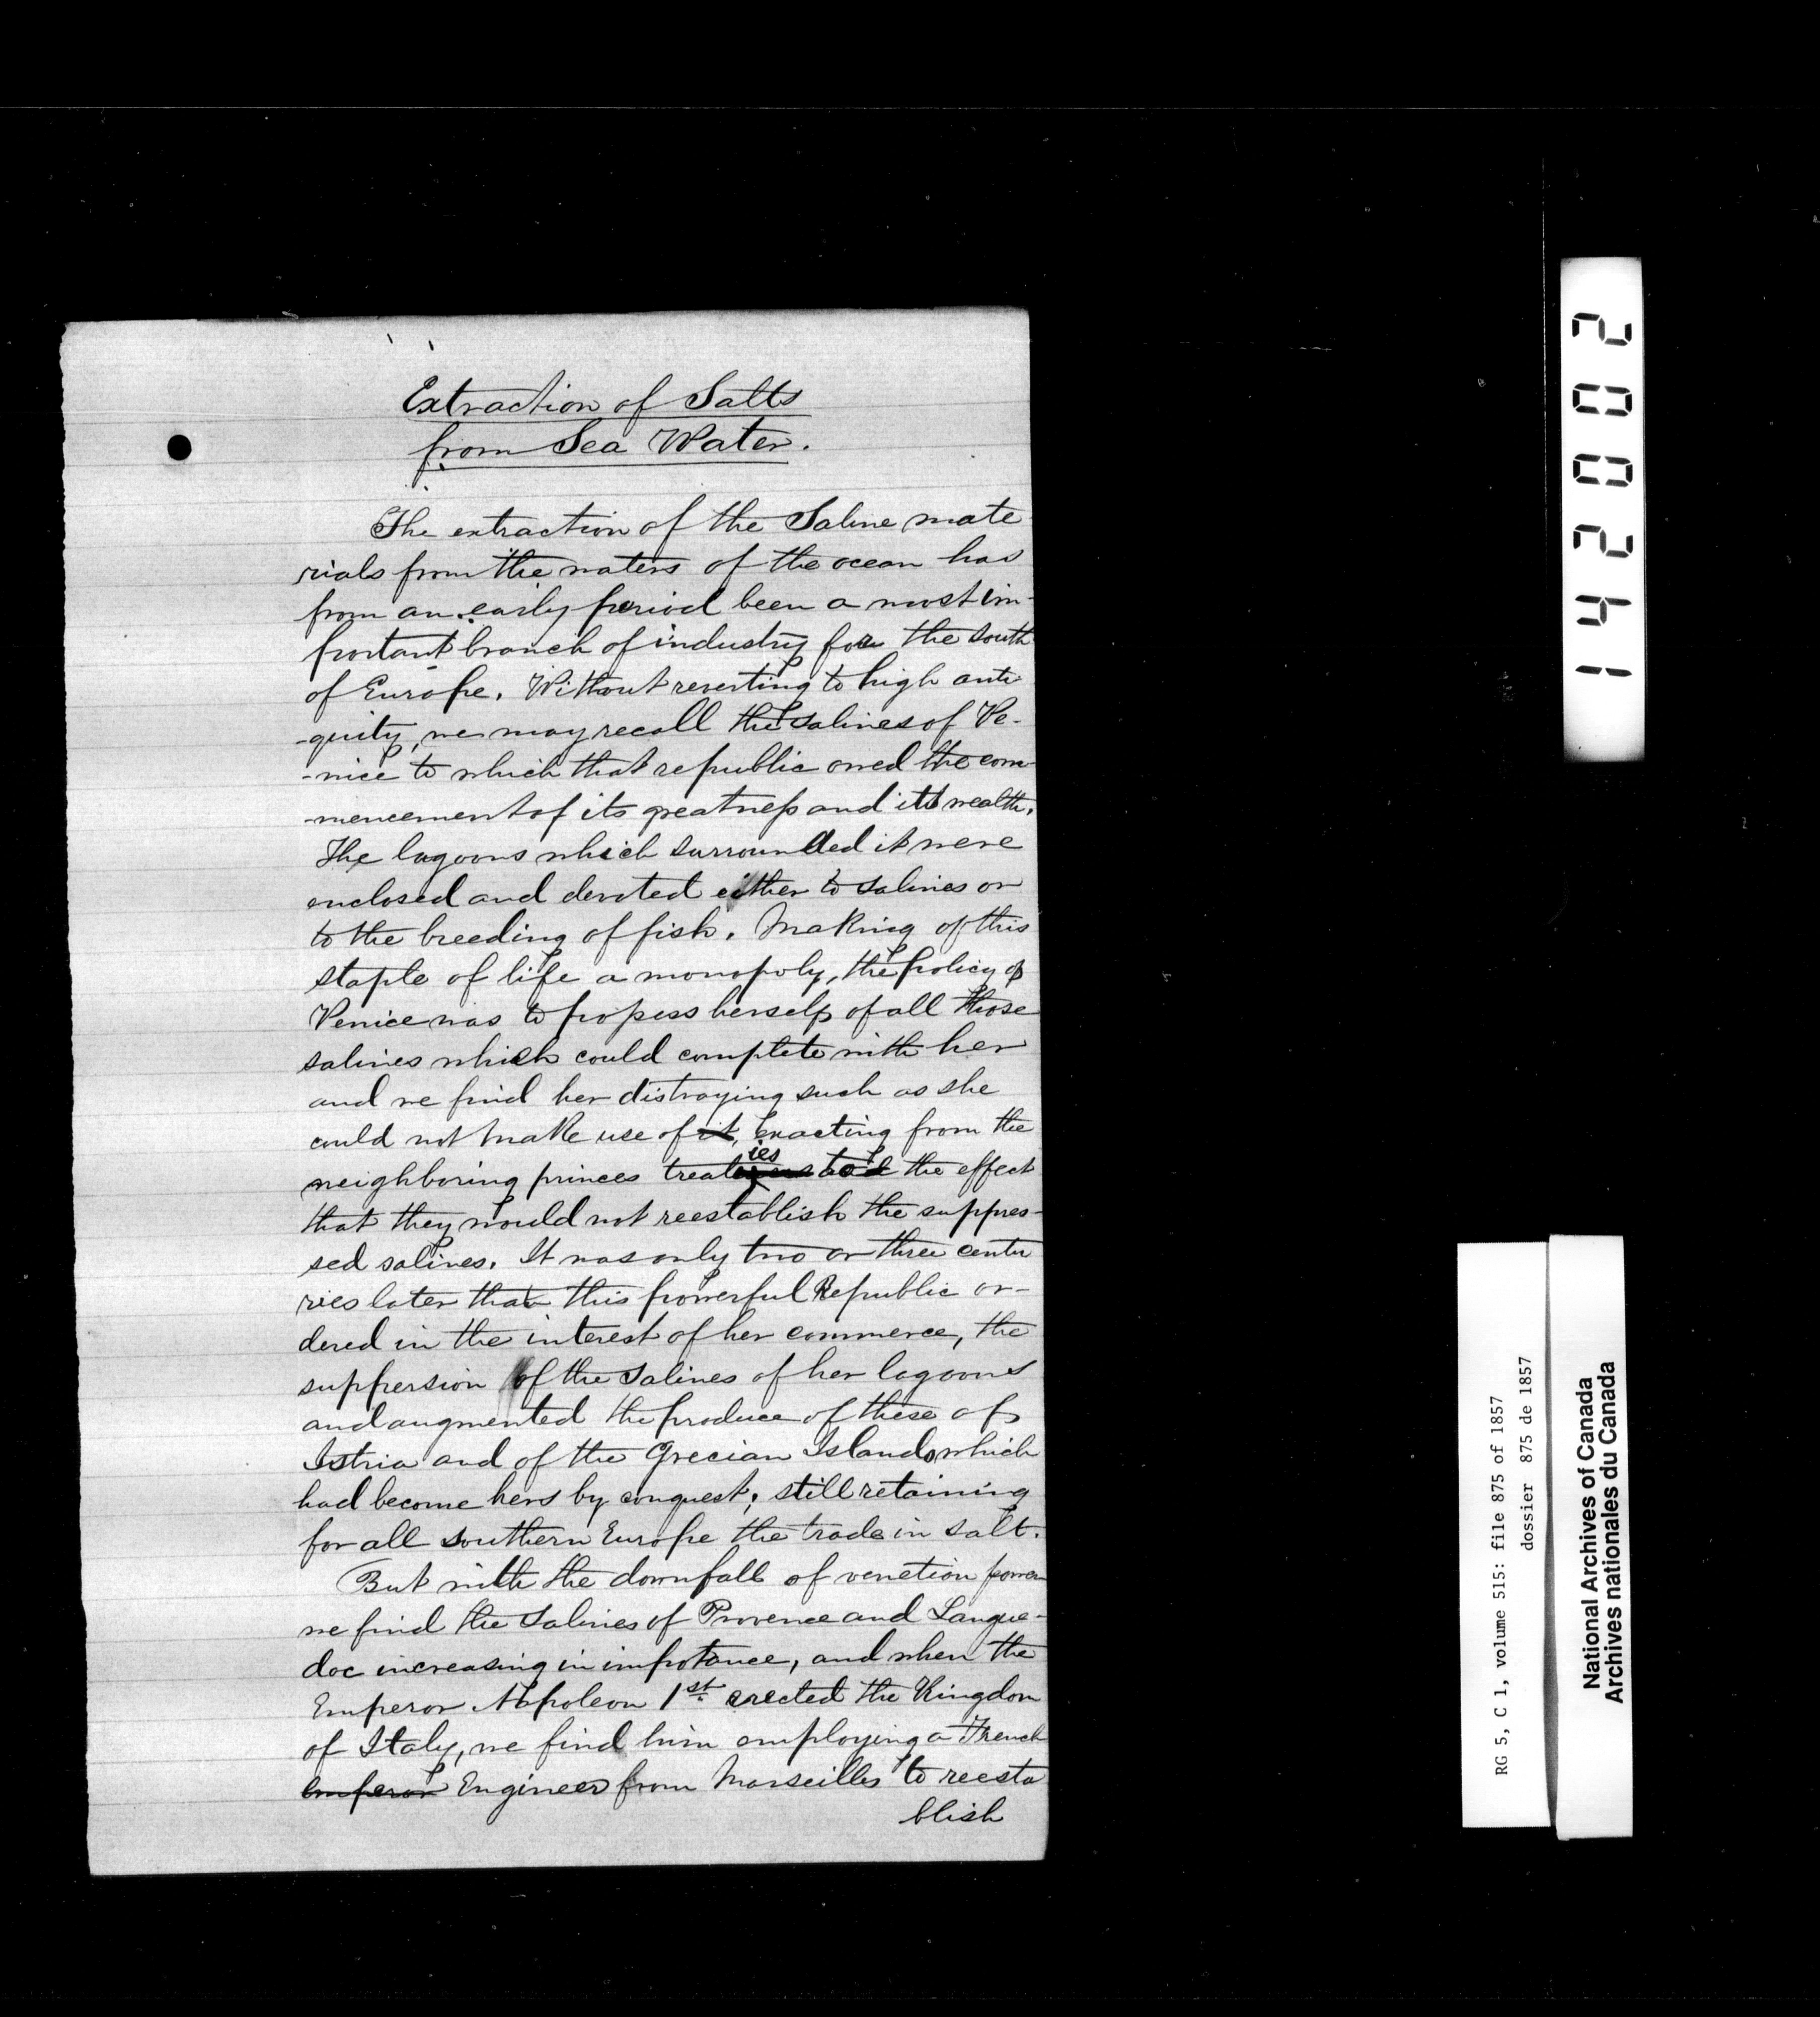 Extraction of Salts
from Sea Water.
The extraction of the Saline mate
rials from the waters of the ocean has
from an early period been a most im-
portant branch of industry for the south
of Europe. Without reverting to high anti
-quity, we may recall the salines of Ve-
-nice to which that republic owed the com-
-mencement of its greatness and its wealth.
The lagoons which surrounded it were
enclosed and devoted either to salines or
to the breeding of fish. Making of this
staple of life a monopoly, the policy of
Venice was to possess herself of all those
salines which could complete with her
and we find her distroying such as she
could not make use of it, exacting from the
neighboring princes treaties to the effect
that they would not reestablish the suppres-
sed salines. It was only two or three centu
ries later that this powerful Republic or-
dered in the interest of her commerce, the
suppersion of the Salines of her lagoons
and augmented the produce of these of
Istria and of the Grecian Islands which
had become hers by conquest; still retaining
for all southern Europe the trade in salt.
But with the downfall of venetion power
we find the Salines of Provence and Langue-
doc increasing in impotance, and when the
Emperor Napoleon 1st. erected the Kingdom
of Italy, we find him employing a French
emperor Engineer from Marseilles to reesta
blish
142002
RG 5, C 1, volume 515: file 875 of 1857
dossier 875 de 1857
National Archives of Canada
Archives nationales du Canada